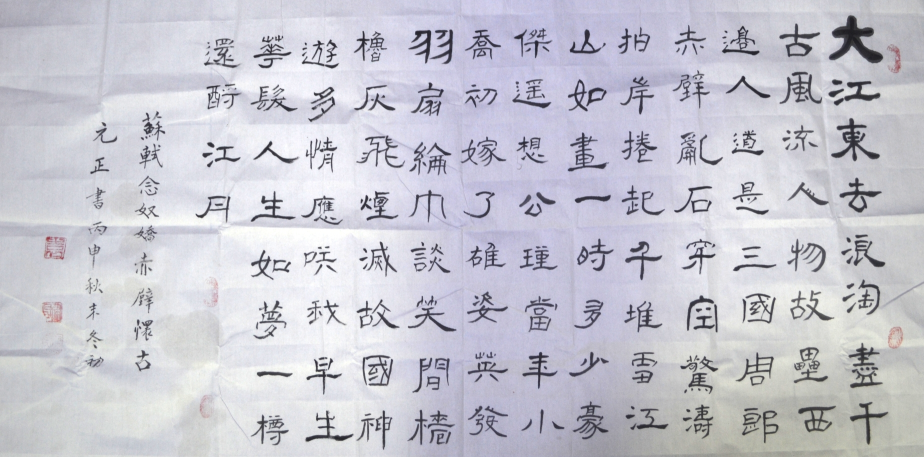 大江東去浪淘盡千
古風流人物故壘西
邊人道是三國周郎
赤壁亂石穿空驚濤
拍岸捲起千堆雪江
山如畫一時多少豪
傑遥想公瑾當年小
喬初嫁了雄姿英發
羽扇綸巾談笑間檣
櫓灰飛煙滅故國神
遊多情應笑我早生
華髮人生如夢一樽
還酹江月
蘇軾念奴嬌赤壁懷古
元正書丙申秋末冬初